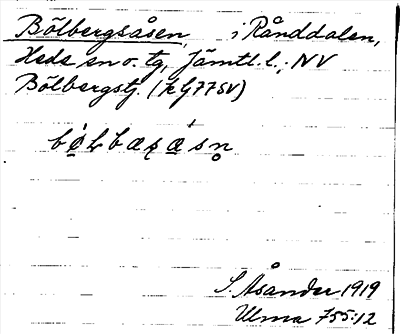 Bölbergsåsen i Rånddalen,
Heds sn o. tg, Jämtl. l.; NV
Bölbergstj. (k G77SV)
S. Åsander 1919
Ulma 755:12